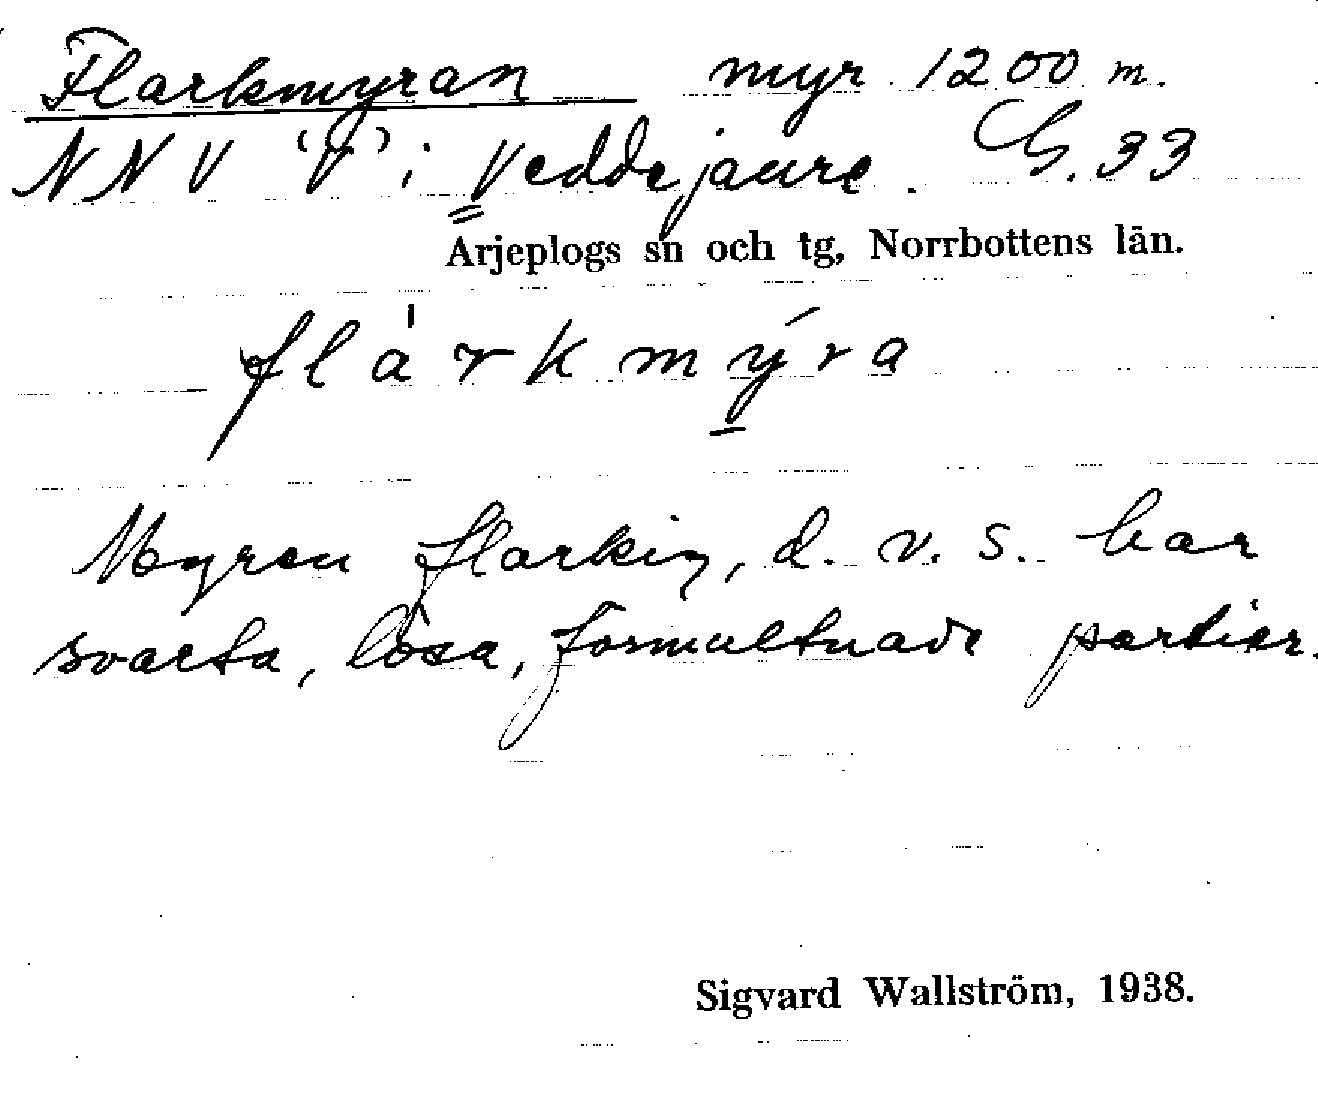 Flarkmyran myr 1200 m.
NNV 'V' i Veddejaure. G.33
Arjeplogs sn och tg, Norrbottens län.
flárkmýra
Myren flarkig, d. v. s. har
svarta, lösa, förmultnade partier.
Sigvard Wallström, 1938.